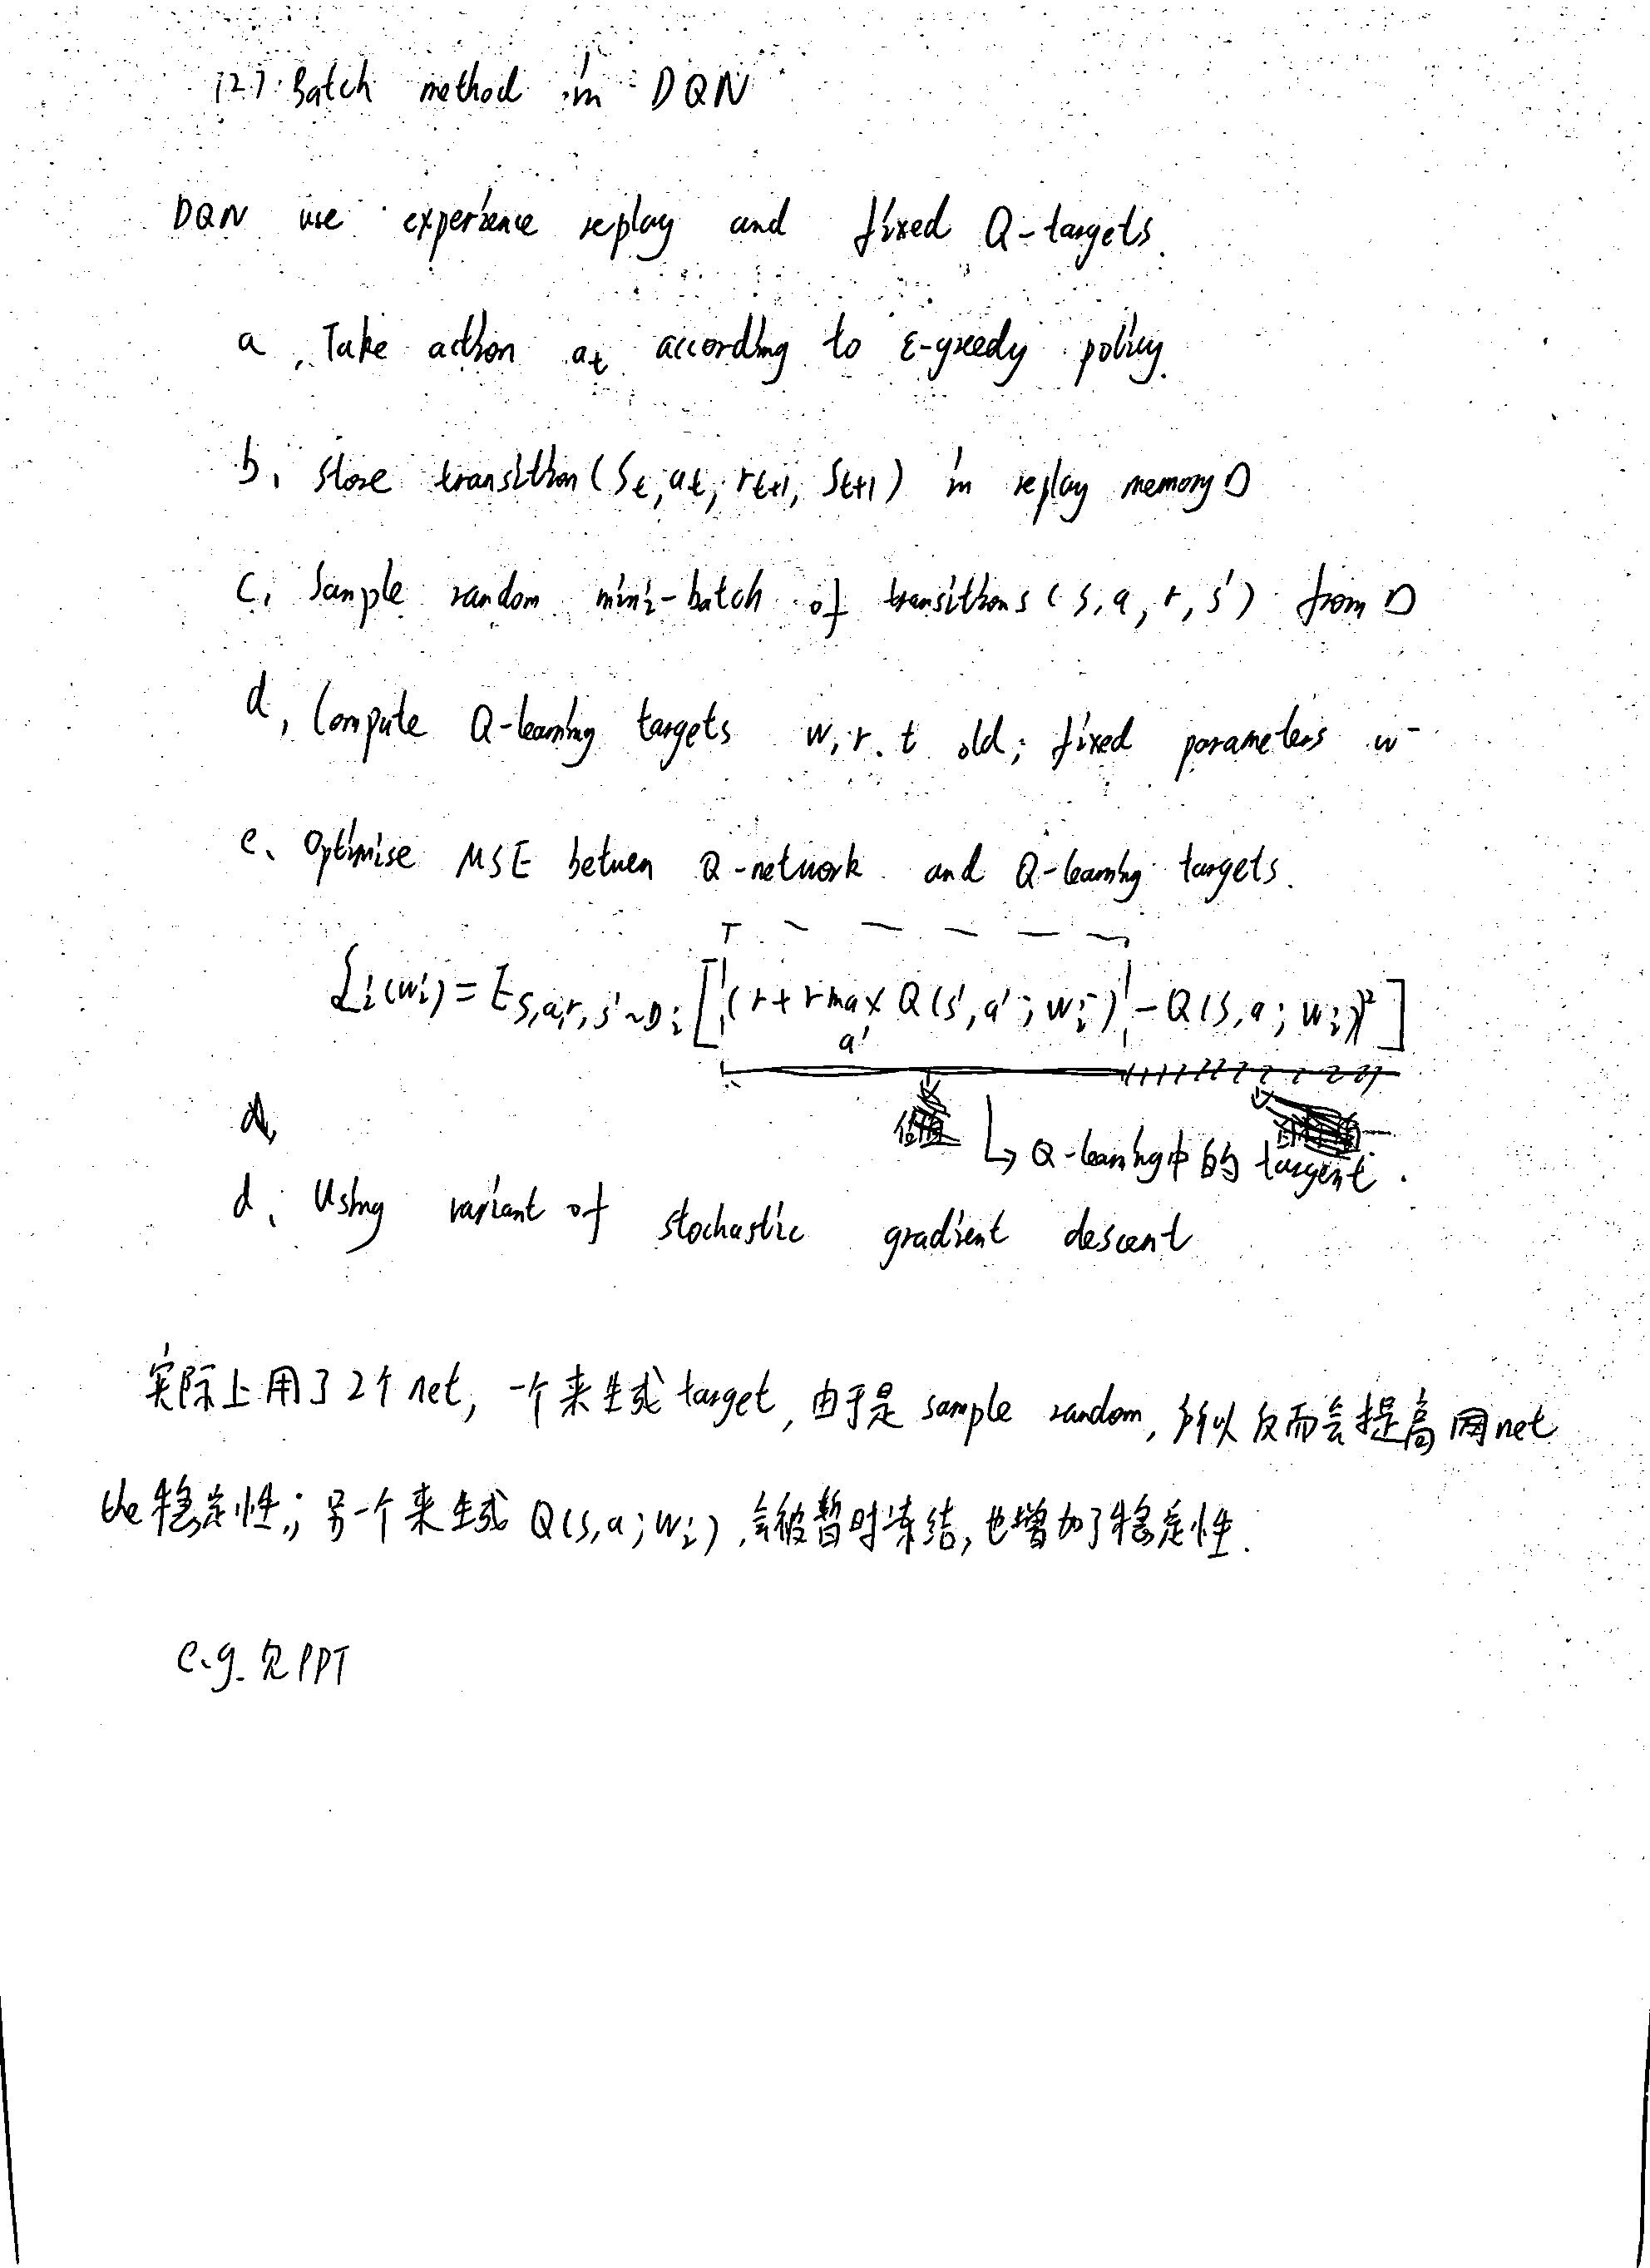 (2) Batch method in DQN
DQN use experience replay and fixed Q-targets.
a、Take action at according to ε-greedy policy.
b、Store transition (St, at, rt+1, St+1) in replay memory D
c、Sample random mini-batch of transitions (s, a, r, s') from D
d、Compute Q-learning targets w.r.t old, fixed parameters w⁻
e、Optimise MSE betwen Q-network and Q-learning targets.
Li(wi) = E s,a,r,s'~Di [(r + r max a' Q(s', a'; wi⁻) - Q(s, a; wi))²]
Q-learning中的 targent.
d、Using variant of stochastic gradient descent
实际上用了2个net, 一个来生成target, 由于是 sample random, 所以反而会提高网net
the稳定性; 另一个来生成 Q(s,a; wi), 会被暂时冻结, 也增加了稳定性.
e.g. 见PPT